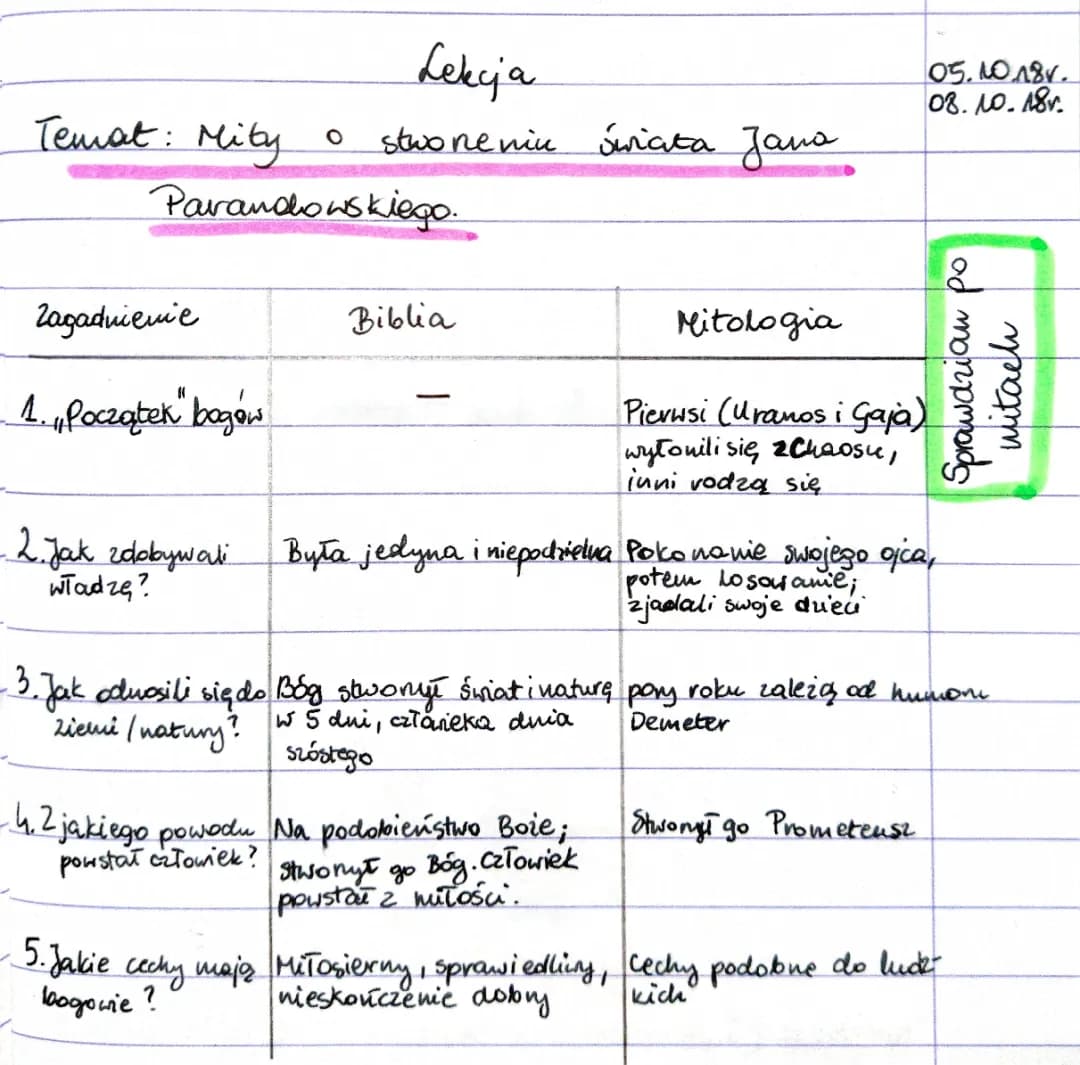 Lekcja
05.10.18r.
08.10.18r.
Temat: Mity o stworzeniu świata Jana
Parandowskiego.
Sprawdzian po
mitach
Zagadnienie
Biblia
Mitologia
1. „Początek" bogów
—
Pierwsi (Uranos i Gaja)
wyłonili się z Chaosu,
inni rodzą się
2. Jak zdobywali
władzę?
Była jedyna i niepodzielna
Pokonanie swojego ojca,
potem losowanie;
zjadali swoje dzieci
3. Jak odnosili się do
ziemi/natury?
Bóg stworzył świat i naturę
w 5 dni, człowieka dnia
szóstego
pory roku zależą od humoru
Demeter
4. Z jakiego powodu
powstał człowiek?
Na podobieństwo Boże;
stworzył go Bóg. Człowiek
powstał z miłości.
Stworzył go Prometeusz
5. Jakie cechy mają
bogowie?
Miłosierny, sprawiedliwy,
nieskończenie dobry
Cechy podobne do ludz-
kich